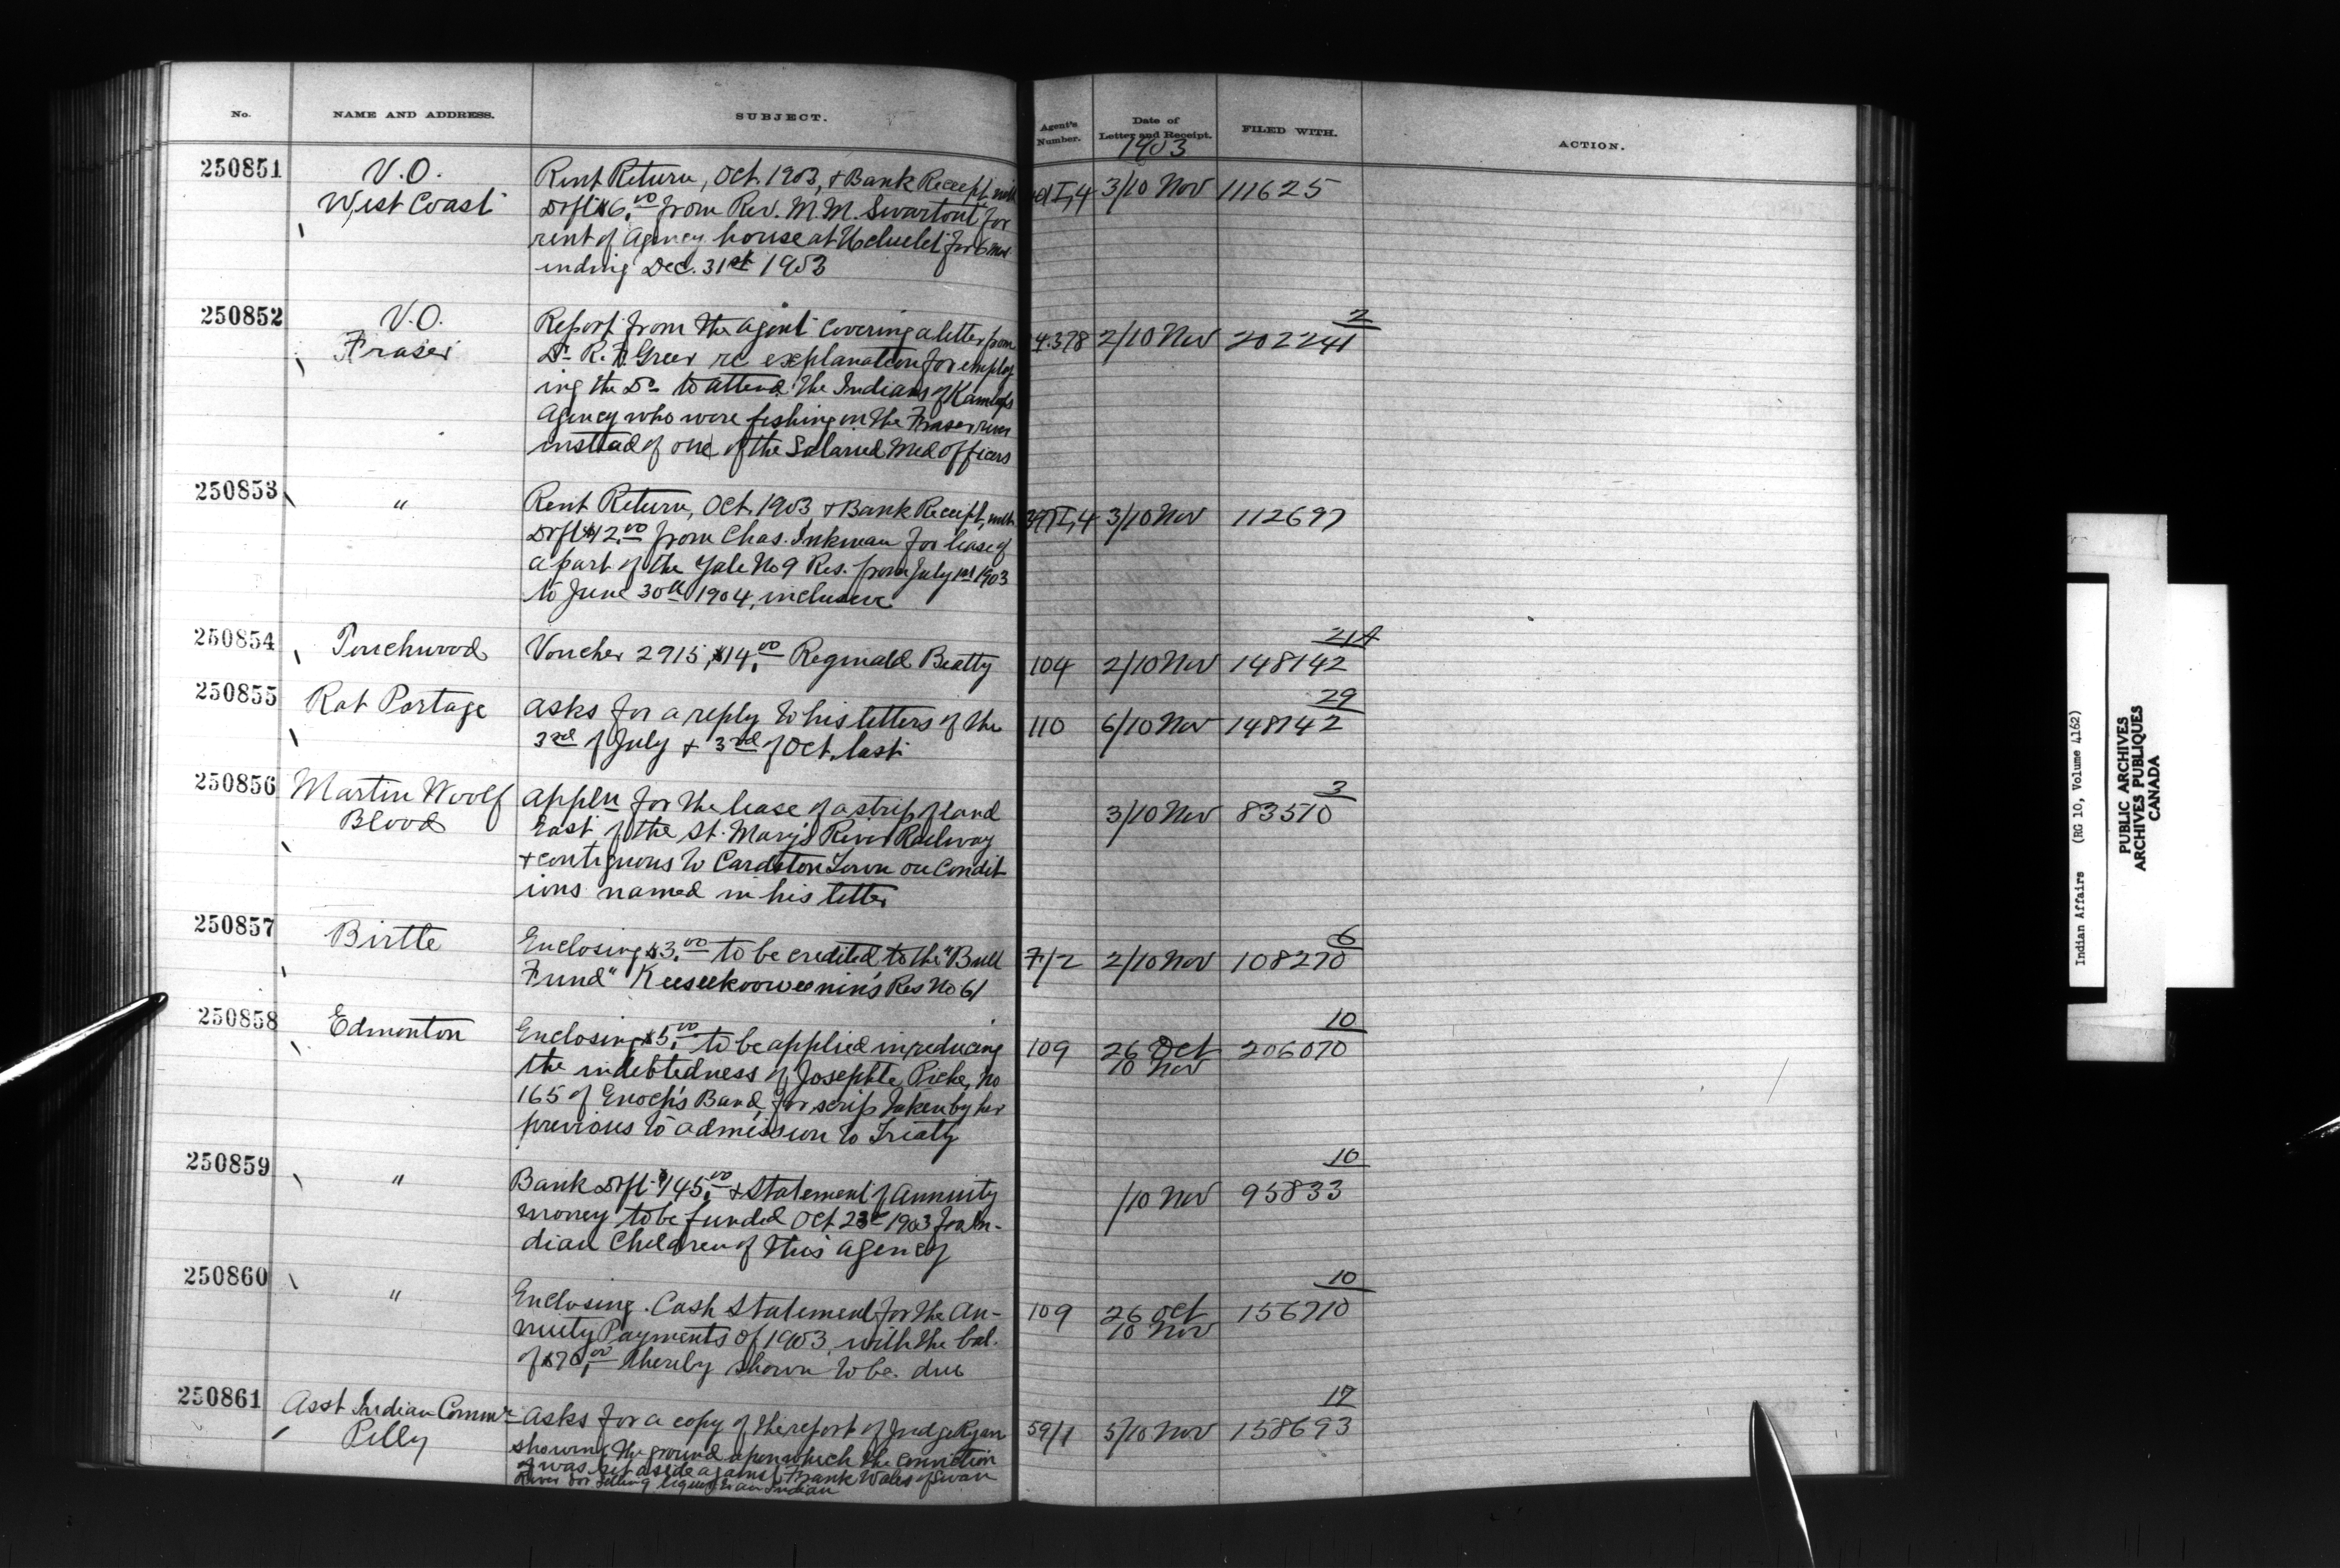 No. NAME AND ADDRESS. SUBJECT. Agent's Number. Date of Letter and Receipt. FILED WITH. ACTION.
1903
250851 V.O. Rent Return, Oct. 1903, & Bank Receipt, with 3/10 Nov 111625
West Coast Drft $6.00 from Rev. M. M. Swartout for
rent of Agency house at Ucluelet for 6 mos
ending Dec. 31st 1903
250852 V.O. Report from the Agent covering a letter from 4.378 2/10 Nov 202241 2
Fraser Dr R. F. Greer re explanation for employ
ing the Dr to attend the Indians of Kamloops
Agency who were fishing on the Fraser river
instead of one of the Salaried Med Officers
250853 " Rent Return, Oct. 1903 & Bank Receipt, with 3/10 Nov 112697
Drft $12.00 from Chas. Inkman for lease of
a part of the Yale No 9 Res. from July 1st 1903
to June 30th 1904, inclusive
250854 Touchwood Voucher 2915, $14.00 Reginald Beatty 104 2/10 Nov 148142 21A
250855 Rat Portage asks for a reply to his letters of the 110 6/10 Nov 148142 29
3rd of July & 3rd of Oct. last
250856 Martin Woolf appln for the lease of a strip of land 3/10 Nov 83510 3
Blood East of the St. Mary's River Railway
& contiguous to Cardston Town on Condit
ions named in his letter
250857 Birtle Enclosing $3.00 to be credited to the "Bull 7/2 2/10 Nov 108270 6
Fund" Keeseekoowenin's Res No 61
250858 Edmonton Enclosing $5.00 to be applied in reducing 109 26 Oct 206070 10
the indebtedness of Josephte Piche, No 10 Nov
165 of Enoch's Band, for scrip taken by her
previous to admission to Treaty
250859 " Bank Drft $145.00 & Statement of Annuity /10 Nov 95833 10
money to be funded Oct 23rd 1903 for In-
dian Children of this agency
250860 " Enclosing Cash Statement for the An- 109 26 Oct 156710 10
nuity Payments of 1903, with the bal. 10 Nov
of $70.00 thereby shown to be due
250861 Asst Indian Commr asks for a copy of the report of Judge Ryan 59/1 5/10 Nov 158693 17
Pelly showing the ground upon which the conviction
was set aside against Frank Wales of Swan
River for selling liquor to an Indian
Indian Affairs (RG 10, Volume 4162)
PUBLIC ARCHIVES
ARCHIVES PUBLIQUES
CANADA